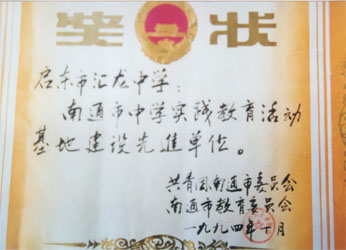 奖状
启东市汇龙中学：
南通市中学实践教育活动
基地建设先进单位。
共青团南通市委员会
南通市教育委员会
一九九四年十月